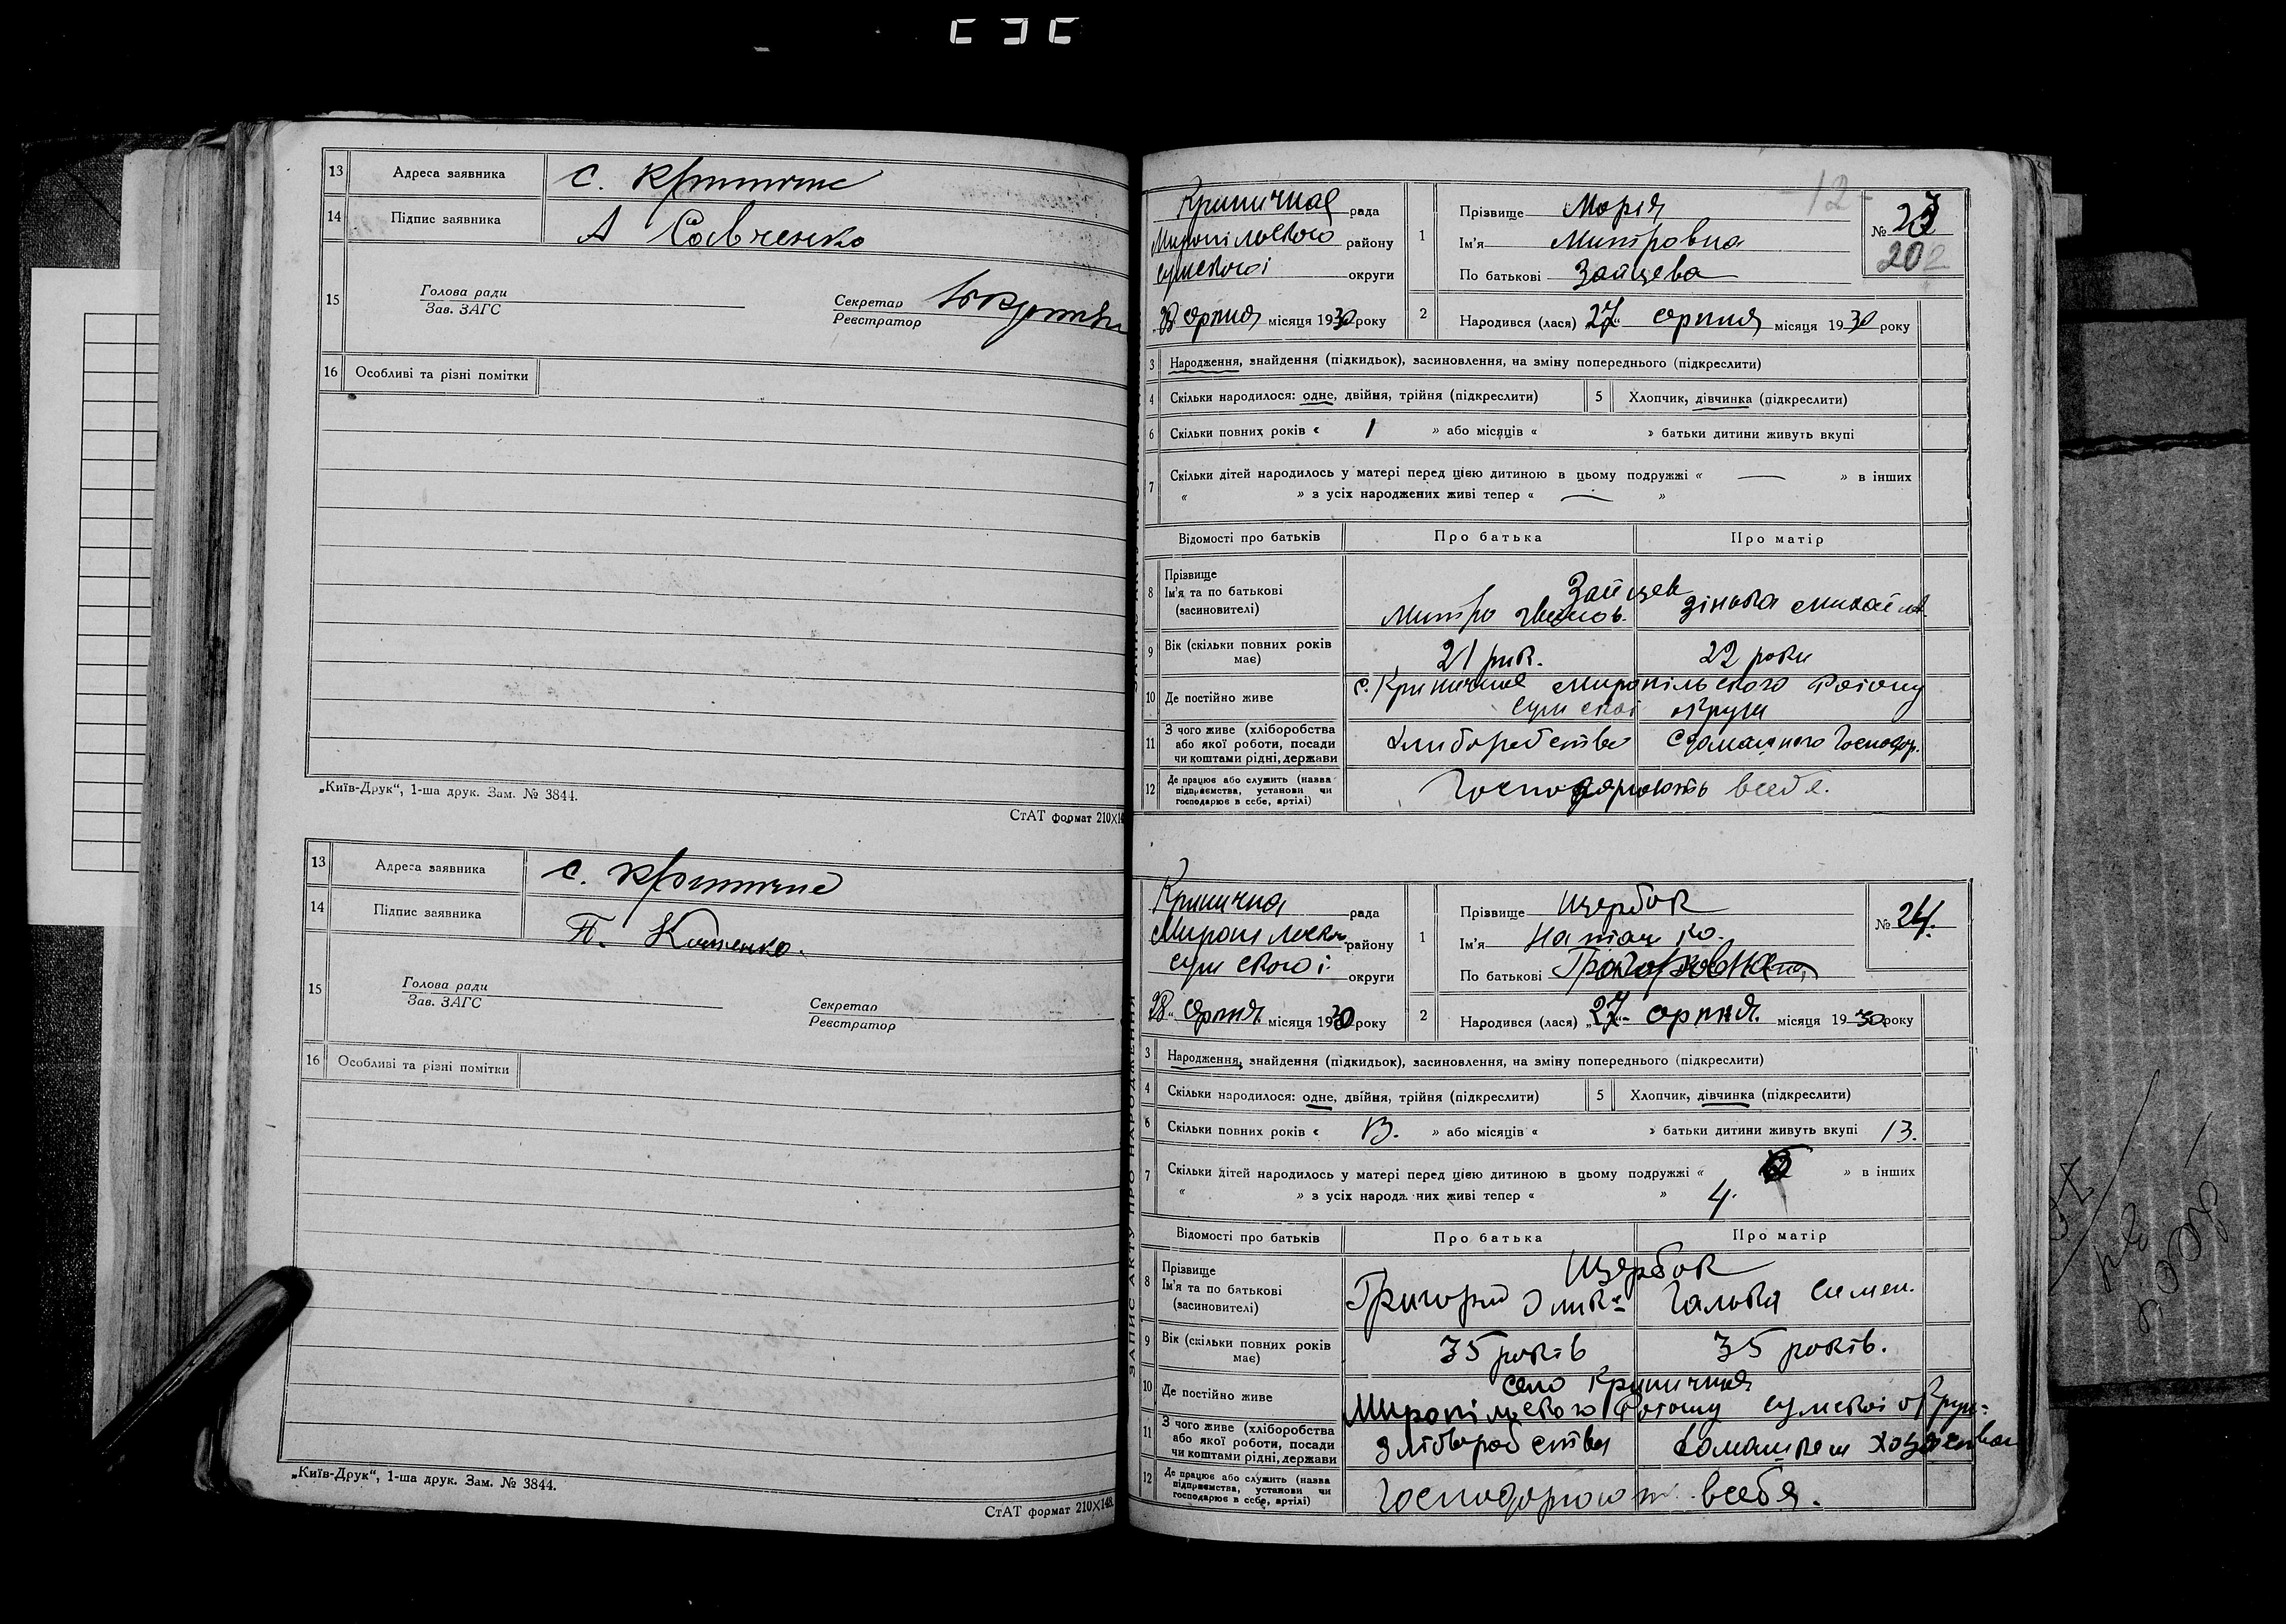 13 Адреса заявника с. Криничне
14 Підпис заявника А Савченко
15 Голова ради
Зав. ЗАГС
Секретар
Реєстратор
16 Особливі та різні помітки
„Київ-Друк“, 1-ша друк. Зам. № 3844.
СтАТ формат 210×14
13 Адреса заявника с. Криничне
14 Підпис заявника
15 Голова ради
Зав. ЗАГС
Секретар
Реєстратор
16 Особливі та різні помітки
„Київ-Друк“, 1-ша друк. Зам. № 3844.
СтАТ формат 210×148.
ЗАПИС АКТУ ПРО НАРОДЖЕННЯ
12-
Криничная рада
Миропільского району
сумскої округи
28 серпня місяця 1930 року
1 Прізвище Марія
Ім'я Митровна
По батькові Зайцева
№ 23
202
2 Народився (лася) „27“ серпня місяця 1930 року
3 Народження, знайдення (підкидьок), засиновлення, на зміну попереднього (підкреслити)
4 Скільки народилося: одне, двійня, трійня (підкреслити) 5 Хлопчик, дівчинка (підкреслити)
6 Скільки повних років « 1 » або місяців « » батьки дитини живуть вкупі
7 Скільки дітей народилось у матері перед цією дитиною в цьому подружжі « — » в інших
« » з усіх народжених живі тепер « — »
Відомості про батьків Про батька Про матір
8 Прізвище
Ім'я та по батькові
(засиновителі)
Зайцев
Митро Зінька Михайл
9 Вік (скільки повних років має) 21 рик. 22 роки
10 Де постійно живе с. Криничне Миропільского Району
Сумскої округи
11 З чого живе (хліборобства або якої роботи, посади чи коштами рідні, держави хліборобство Здомашнего Господар.
12 Де працює або служить (назва підприємства, установи чи господарює в себе, артілі) Господарюють всебе.
Кринична рада
район
сумскої округи
28 серпня місяця 1930 року
1 Прізвище Щербак
Ім'я Наталка
По батькові Григоровна
№ 24.
2 Народився (лася) „27“ серпня. місяця 1930 року
3 Народження, знайдення (підкидьок), засиновлення, на зміну попереднього (підкреслити)
4 Скільки народилося: одне, двійня, трійня (підкреслити) 5 Хлопчик, дівчинка (підкреслити)
6 Скільки повних років « 13. » або місяців « » батьки дитини живуть вкупі 13.
7 Скільки дітей народилось у матері перед цією дитиною в цьому подружжі « » в інших
« » з усіх народжених живі тепер « » 4.
Відомості про батьків Про батька Про матір
8 Прізвище
Ім'я та по батькові
(засиновителі)
Щербак
Григорий Галька Симен.
9 Вік (скільки повних років має) 35 років 35 років.
10 Де постійно живе село Криничная
Миропільского Району сумскої округ
11 З чого живе (хліборобства або якої роботи, посади чи коштами рідні, держави
12 Де працює або служить (назва підприємства, установи чи господарює в себе, артілі) Господарюют всебя.